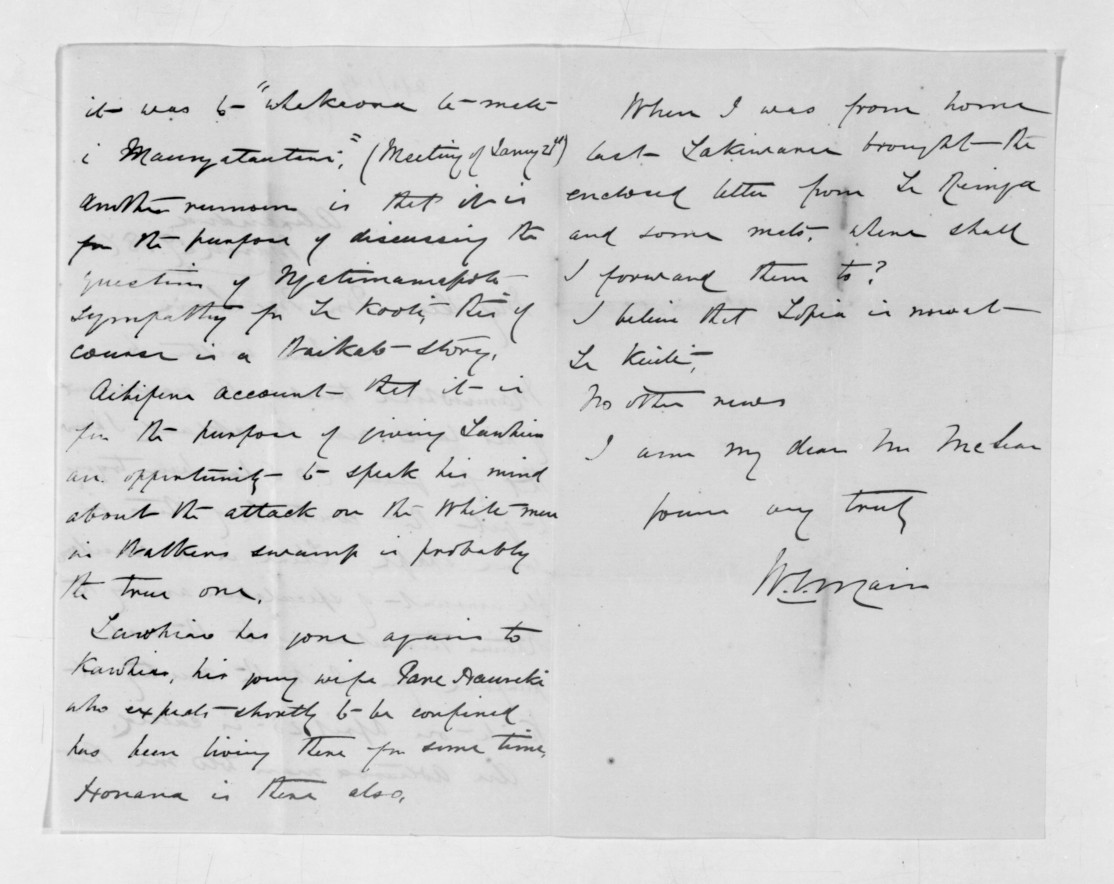 it was to "whakaona te mate
i Maungatautari", (Meeting of Jany 21st)
another rumour is that it is
for the purpose of discussing the
question of Ngatimaniapoto
sympathy for Te Kooti, this of
course is a Waikato story.
Aihipene account that it is
for the purpose of giving Tawhiao
an opportunity to speak his mind
about the attack on the White men
in Walkers swamp is probably
the true one.
Tawhiao has gone again to
Kawhia, his young wife Pare Hauraki
who expects shortly to be confined
has been living there for some time,
Honana is there also.
When I was from home
last Takiwaru brought the
enclosed letter from Te Reinga
and some mats, where shall
I forward them to?
I believe that Topia is now at
Te Kuiti,
No other news
I am my dear Mr McLean
yours very truly
W.G. Mair